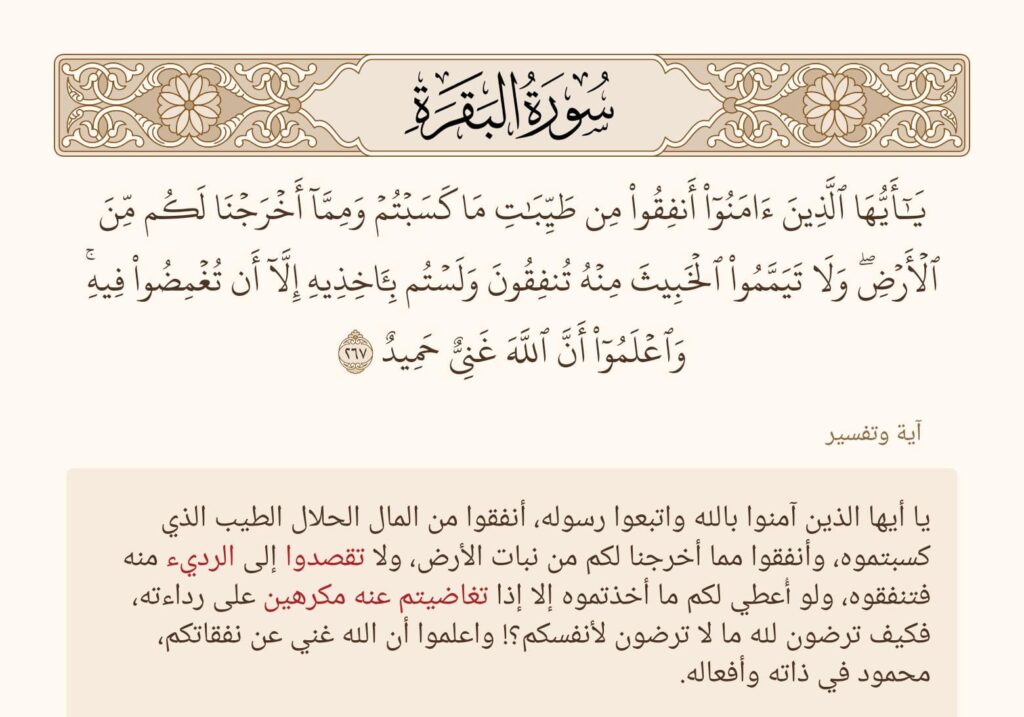 سُورَةُ البَقَرَةِ
يَـٰٓأَيُّهَا ٱلَّذِينَ ءَامَنُوٓا۟ أَنفِقُوا۟ مِن طَيِّبَـٰتِ مَا كَسَبْتُمْ وَمِمَّآ أَخْرَجْنَا لَكُم مِّنَ
ٱلْأَرْضِ ۖ وَلَا تَيَمَّمُوا۟ ٱلْخَبِيثَ مِنْهُ تُنفِقُونَ وَلَسْتُم بِـَٔاخِذِيهِ إِلَّآ أَن تُغْمِضُوا۟ فِيهِ ۚ
وَٱعْلَمُوٓا۟ أَنَّ ٱللَّهَ غَنِىٌّ حَمِيدٌ ٢٦٧
آية وتفسير
يا أيها الذين آمنوا بالله واتبعوا رسوله، أنفقوا من المال الحلال الطيب الذي
كسبتموه، وأنفقوا مما أخرجنا لكم من نبات الأرض، ولا تقصدوا إلى الرديء منه
فتنفقوه، ولو أُعطي لكم ما أخذتموه إلا إذا تغاضيتم عنه مكرهين على رداءته،
فكيف ترضون لله ما لا ترضون لأنفسكم؟! واعلموا أن الله غني عن نفقاتكم،
محمود في ذاته وأفعاله.